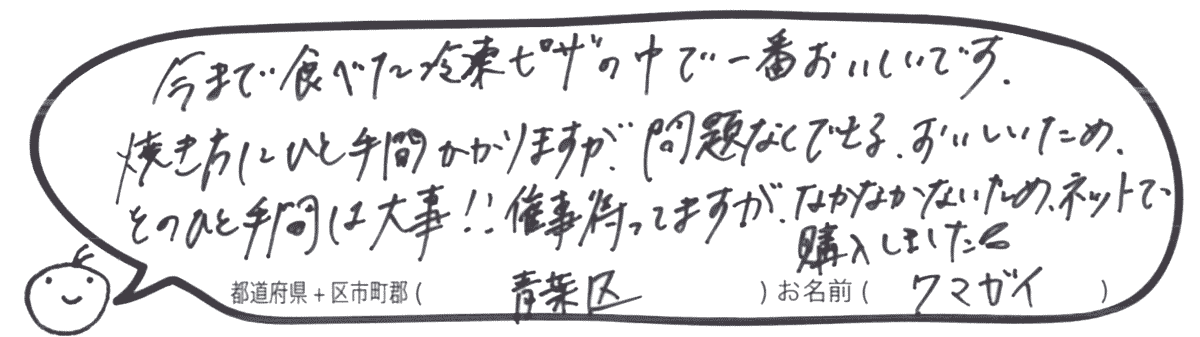 今まで食べた冷凍ピザの中で一番おいしいです。
焼き方にひと手間かかりますが、問題なくできる。おいしいため、
そのひと手間は大事!! 催事待ってますが、なかなかないため、ネットで
購入しました
都道府県+区市町郡( 青葉区 )お名前( クマガイ )